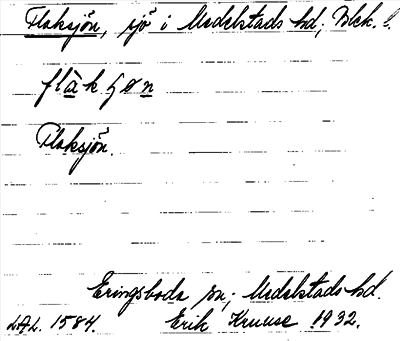 Flaksjön, sjö i Medelstads hd, Blek. l.
flàkʃøn
Flaksjön.
Eringsboda sn, Medelstads hd.
LAL. 1584. Erik Kruuse 1932.